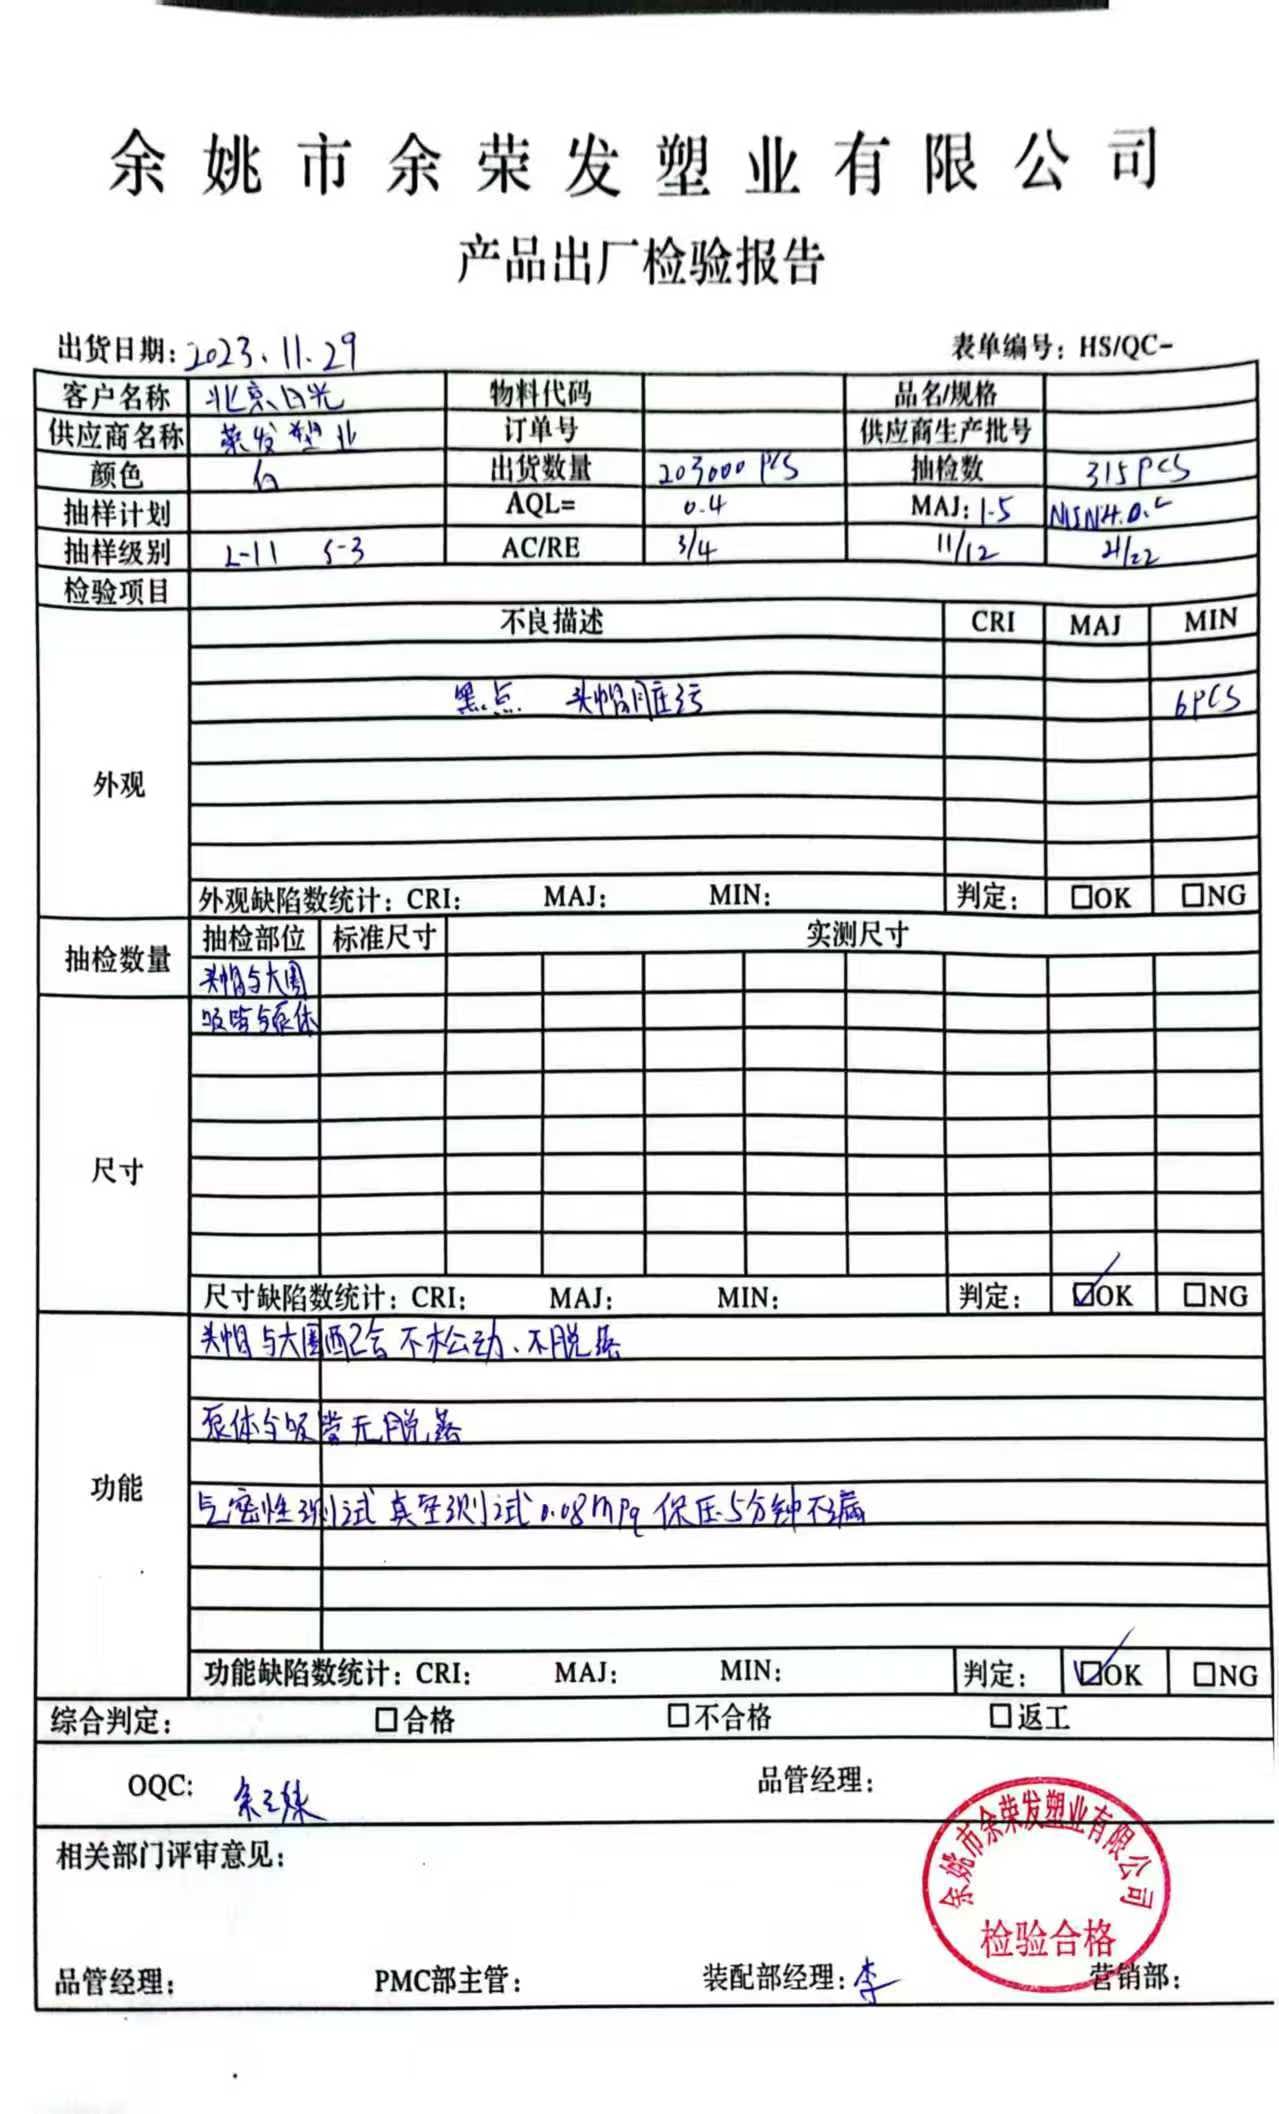 余姚市余荣发塑业有限公司
产品出厂检验报告
出货日期：2023.11.29 表单编号：HS/QC-
客户名称 北京日光 物料代码 品名/规格
供应商名称 荣发塑业 订单号 供应商生产批号
颜色 白 出货数量 203000PCS 抽检数 315PCS
抽样计划 AQL= 0.4 MAJ：1.5
抽样级别 L-11 S-3 AC/RE 3/4 11/12 21/22
检验项目
不良描述 CRI MAJ MIN
黑点 头帽 6PCS
外观
外观缺陷数统计：CRI： MAJ： MIN： 判定： □OK □NG
抽检数量 抽检部位 标准尺寸 实测尺寸
头帽与大圈
吸管与泵体
尺寸
尺寸缺陷数统计：CRI： MAJ： MIN： 判定： ☑OK □NG
头帽与大圈配合不松动、不脱落
泵体与吸管无脱落
功能
气密性测试 真空测试0.08MPa 保压5分钟不漏
功能缺陷数统计：CRI： MAJ： MIN： 判定： ☑OK □NG
综合判定： □合格 □不合格 □返工
OQC： 品管经理：
相关部门评审意见：
余姚市余荣发塑业有限公司
检验合格
品管经理： PMC部主管： 装配部经理：李 营销部：